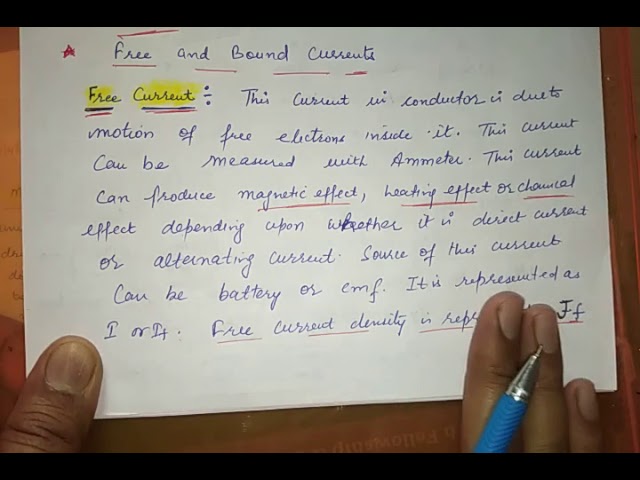 Free and Bound Currents
Free Current :- This current in conductor is due to
motion of free electrons inside it. This current
Can be measured with Ammeter. This current
Can produce magnetic effect, heating effect or chemical
effect depending upon whether it is direct current
or alternating current. Source of this current
Can be battery or emf. It is represented as
I or If. Free current density is Jf